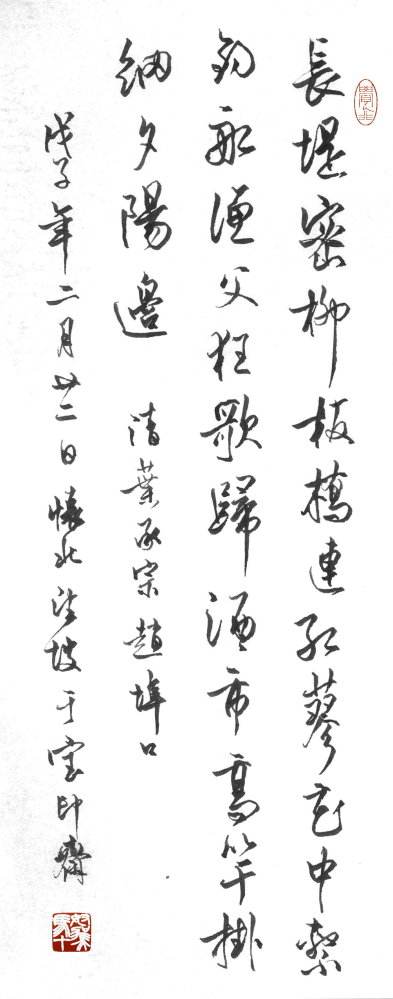 長堤密柳板橋連紅蓼花中繫
釣船漁父狂歌歸酒市高竿掛
網夕陽邊 清葉承宗趙埠口
戊子年二月廿二日懷北 于寶印齋